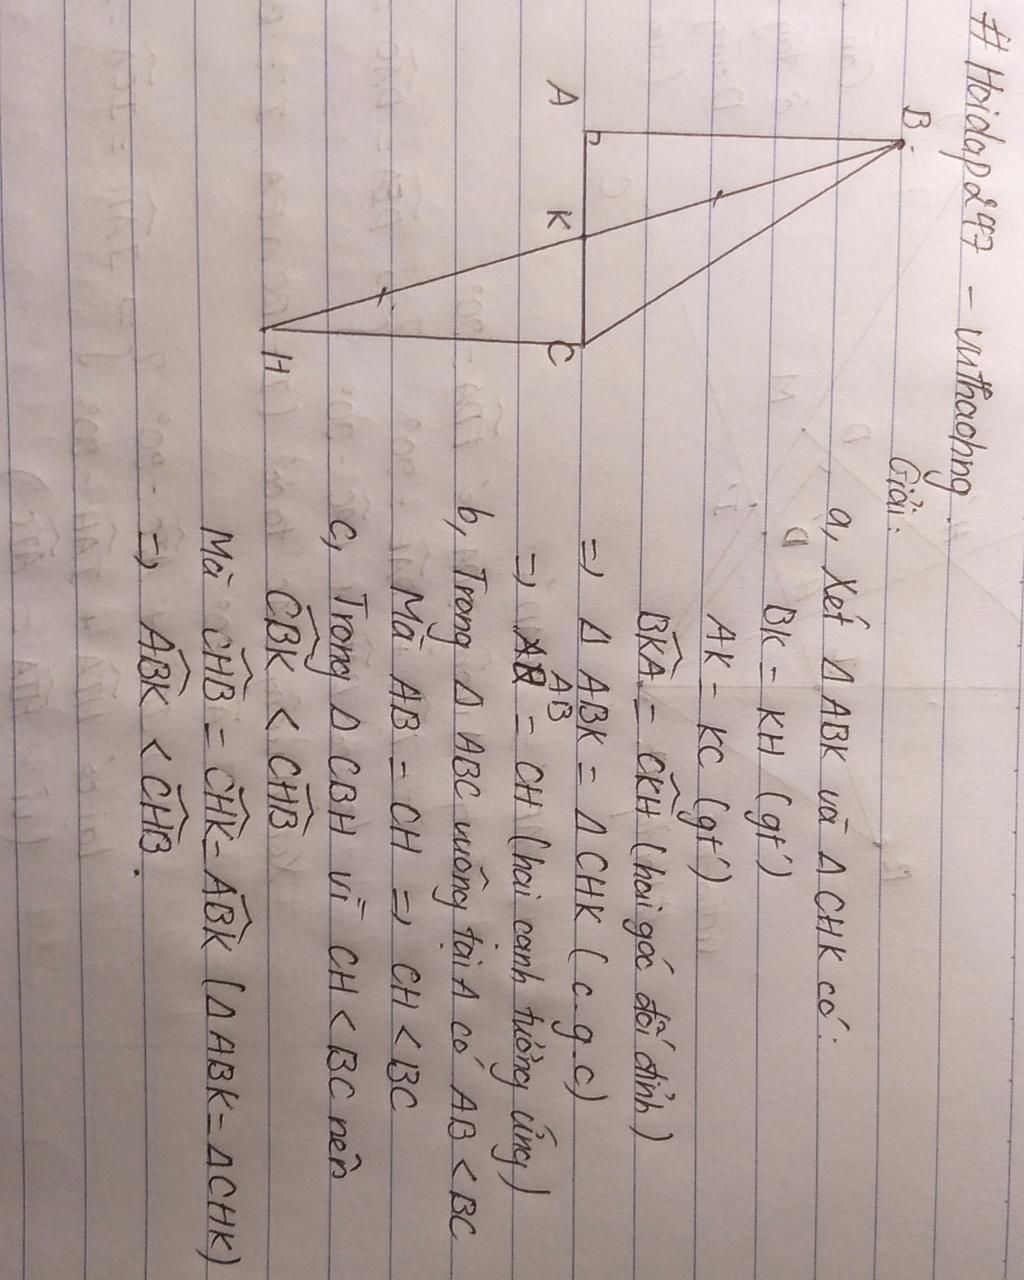 # Hoidap247 - vnthaohng
B
A
K
C
H
Giải:
a, Xét Δ ABK và Δ CHK có:
BK = KH (gt)
AK = KC (gt)
B̂KA = ĈKH (hai góc đối đỉnh)
=> Δ ABK = Δ CHK (c-g-c)
=> AB = CH (hai cạnh tương ứng)
b, Trong Δ ABC vuông tại A có AB < BC
Mà AB = CH => CH < BC
c, Trong Δ CBH vì CH < BC nên
ĈBK < ĈHB
Mà ĈHB = ĈHK = ÂBK (Δ ABK = Δ CHK)
=> ÂBK < ĈHB.